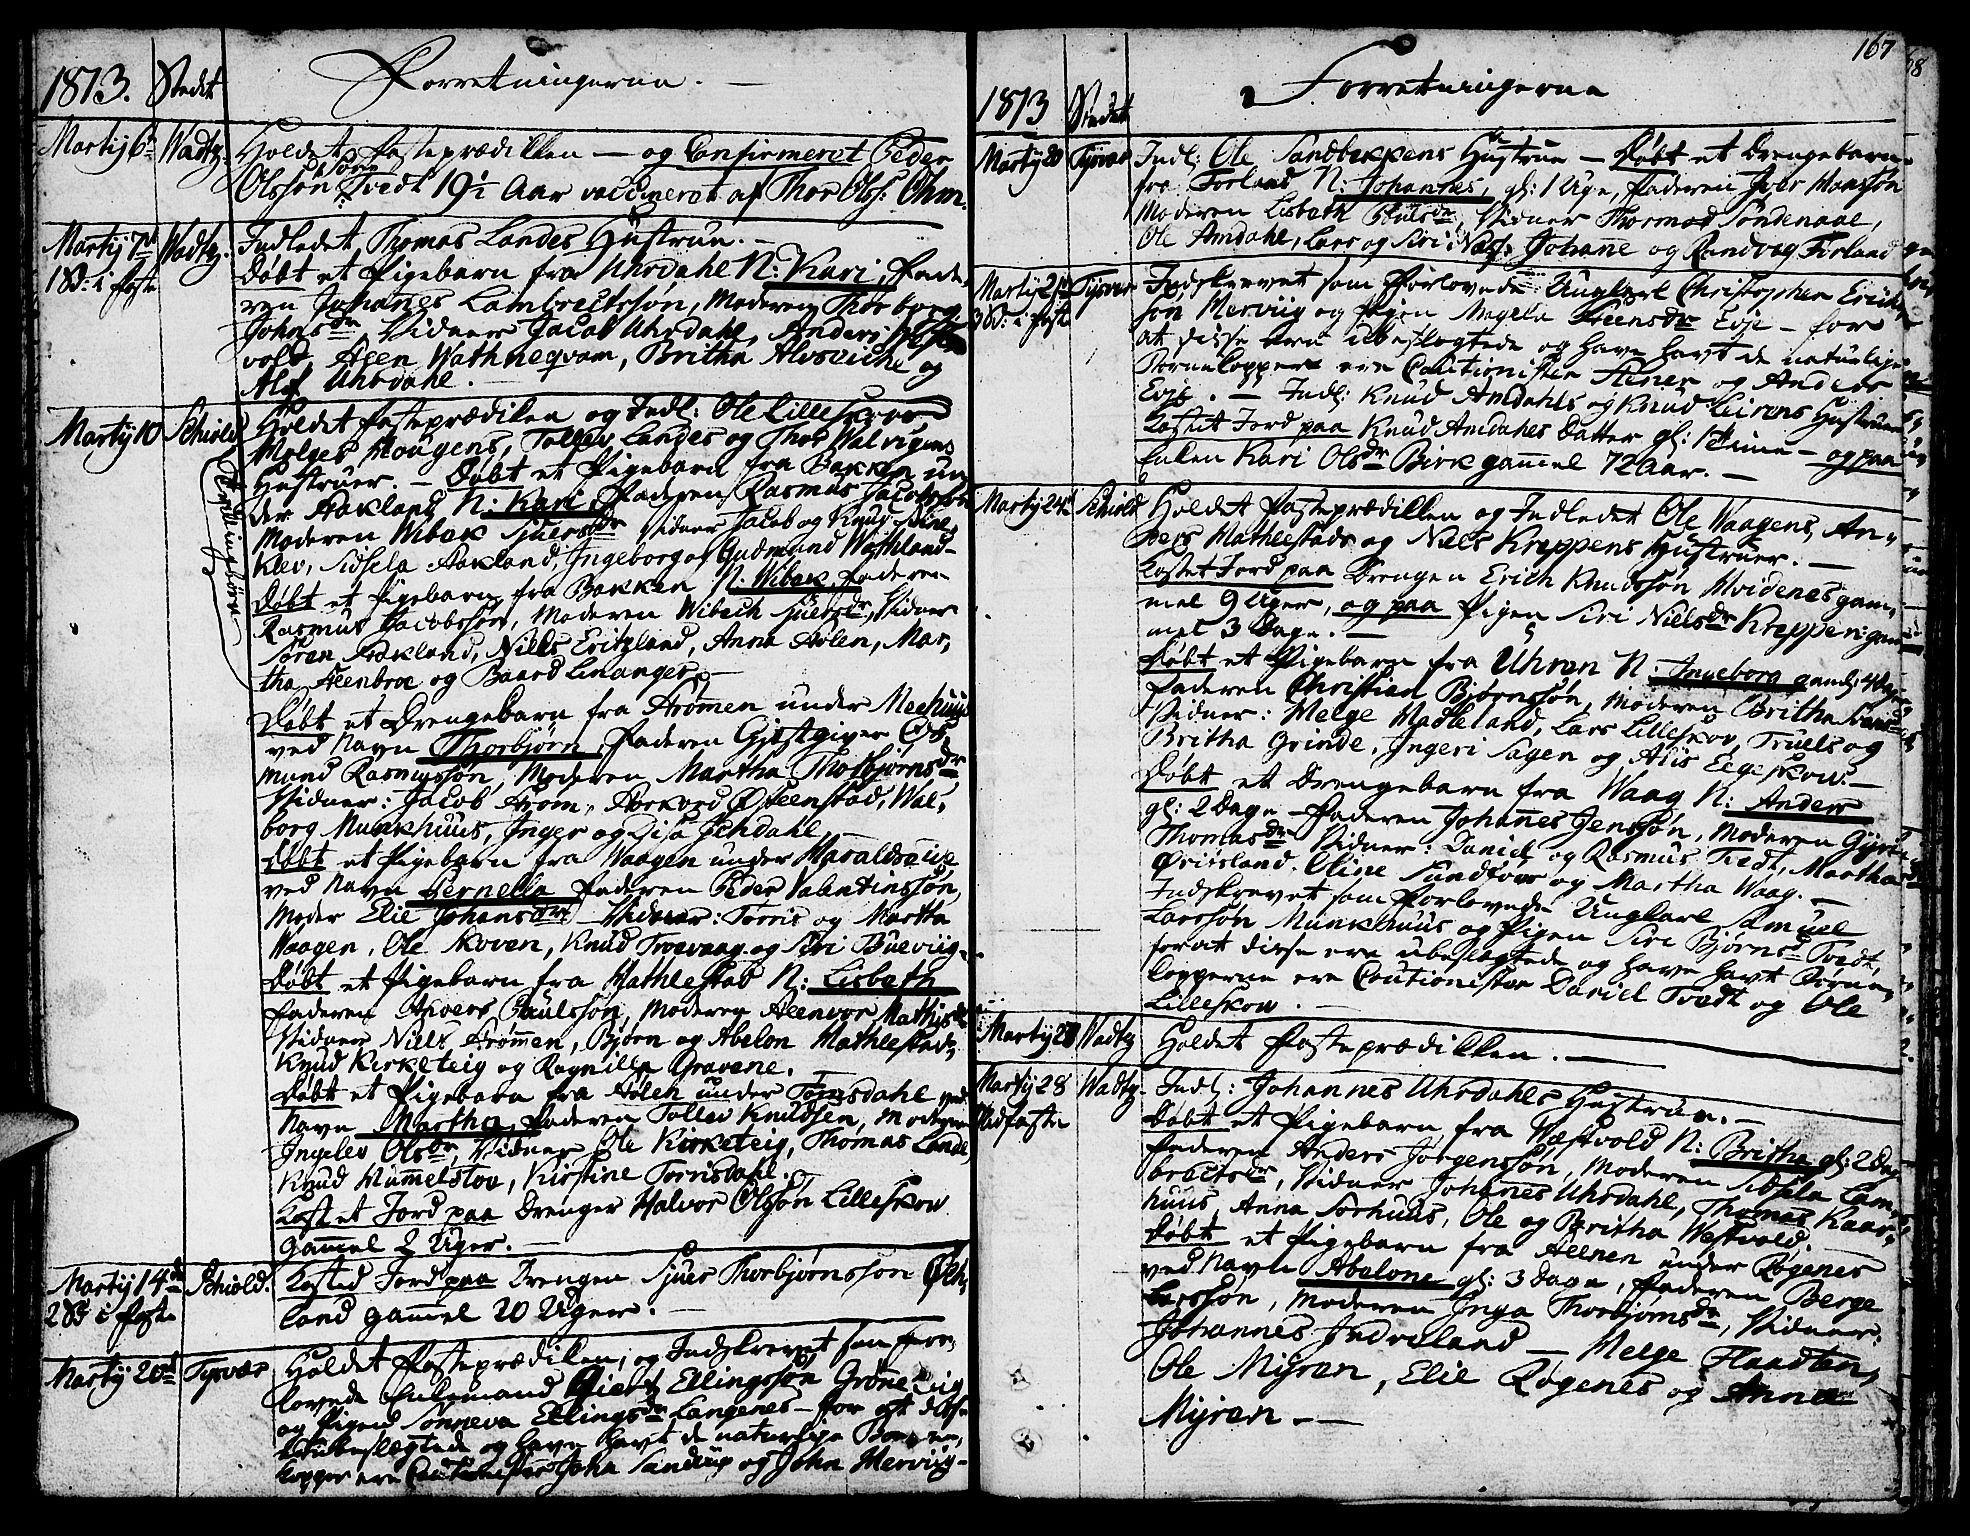 1813. Stedet Forretningerne. —
Martij 6te Wadtz. Holdet Fasteprædikken — og Confirmeret Peder
Olssøn Tvedt 19½ Aar vaccineret af Thor Olss: Ohm.
Martij 7de Wadtz. Indledet Thomas Landes Hustrue. —
1 Sd: i Faste Døbt et Pigebarn fra Uhrdahl N: Kari, Fade,
ren Johanes Lambrectssøn, Moderen Thorborg
Johnsdr, Vidner Jacob Uhrdahl, Anders
vold, Steen Wathneqvam, Britha Alvsviche og
Alf Uhrdahl. —
Martij 10 Schiold Holdet Fasteprædiken og Indl: Ole Lilleskovs
Helges Hougens, Tollev Landes og Thor Walvigens
Hustruer. — Døbt et Pigebarn fra Bakken un
Tvillingebørn
der Aakland N: Kari, Faderen Rasmus Jacobssøn
Moderen Wibek Sjuersdr Vidner Jacob og Knud
Klev, Sidsela Aakland, Ingeborg og Gudmund Wathland —
Døbt et Pigebarn fra Bakken N: Wibek, Faderen
Rasmus Jacobssøn, Moderen Wibech Sjuersdr, Vidner
Søren Aakland, Niels Eritzland, Anna Aolen, Mar,
tha Steenbroe og Baard Linanger. —
Døbt et Drengebarn fra Strømen under Meehuus
ved Navn Thorbjørn, Faderen Gjestgiver Os,
mund Rasmussøn, Moderen Martha Thorbjørnsdr
Vidner: Jacob Strøm, Østeenstad, Wal,
borg Munkhuus, Inger og Disa Jendahl —
Døbt et Pigebarn fra Waagen under Haraldseide
ved Navn Pernella Faderen Peder Valentinssøn,
Moder Elie Johansdtr — Vidner: Torris og Martha
Waagen, Ole Skoven, Knud Troevaag og Siri Tueviig.
Døbt et Pigebarn fra Mathlestad N: Lisbeth
Faderen Anders Paulssøn, Moderen Steenvor Mathisdr
Vidner Niels Strømmen, Bjørn og Abelon Mathlestad,
Knud Kirketeig og Ragnilla Gravene.
Døbt et Pigebarn fra Aolen under Tornsdahl ved
Navn Martha, Faderen Tollev Knudsen, Moderen
Ingelev Olsdr, Vidner Ole Kirketeig, Thomas Lande,
Knud Hummelstov, Kirstine Tornsdahl.
Kastet Jord paa Drengen Halvor Olssøn Lilleskov
gammel 2 Uger. —
Martij 14de Schiold. Kasted Jord paa Drengen Sjuer Thorbjørnssøn
2 Sd i Faste land gammel 20 Uger. —
Martij 20de Tysvær Holdet Fasteprædiken, og Indskrevet som for,
lovede Enkemand Ellingssøn Grøne
og Pigen Sønneva Ellingsdr Langenes — for at disse
ere ubeslægtede og have havt de naturlige Børne,
kopper ere Cautionister John Sandtup og John Merviig —
167
68
1813 Stedet Forretningerne
Martij 20 Tysvær Indl: Ole Sandbekkens Hustrue — Døbt et Drengebarn
fra Forland N: Johannes, gl: 1 Uge, Faderen Iver Hanssøn
Moderen Lisbeth Paulsdr, Vidner Thormod Søndenaae,
Ole Amdahl, Lars og Siri Næss, Johanne og Randveg Førland
Martij 21de Tysvær Indskrevet som Forlovede Ungkarl Christopher Erichs
3 Sd: i Faste søn Merviig og Pigen Megela Steensdr Eoje — for
at disse ere ubeslægtede og have havt de naturlige
Børnekopper ere Cautionister Stener og Anders
Eoje. — Indl: Knud Amdahls og Knud Leirens Hustruer
Kastet Jord paa Knud Amdahls Datter gl: 1 Time — og paa
Enken Kari Olsdr Birk gammel 72 Aar. —
Martij 24de Schiold Holdet Fasteprædikken og Indledet Ole Waagens, An,
ders Mathlestads og Niels Kreppens Hustruer. —
Kastet Jord paa Drengen Erich Knudssøn Hvidenes gam,
mel 9 Uger, og paa Pigen Siri Nielsdr Kreppen gam
mel 3 Dage. —
Døbt et Pigebarn fra Uhren N: Ingeborg gaml: 4 Dage
Faderen Christian Bjørnssøn, Moderen Britha
Vidner: Helge Madleland, Lars Lilleskov, Truels og
Britha Grinde, Ingeri Sagen og Aiis Eegeskow. —
Døbt et Drengebarn fra Waag N: Anders
gl: 2 Dage — Faderen Johannes Jenssøn, Moderen Gyri
Thomasdr Vidner: Daniel og Rasmus Tvedt, Martha
Øriisland, Oline Sundfør og Martha Waag. —
Indskrevet som Forlovede Ungkarl Samuel
Larssøn Munkhuus og Pigen Siri Bjørnsd Tvedt,
forat disse ere ubeslægtede og have havt Børne,
kopperne ere Cautionister Daniel Tvedt og Ole
Lilleskow. —
Martij Wadtz Holdet Fasteprædikken. —
Martij 28 Wadtz. Indl: Johannes Uhrdahls Hustrue. —
Midfaste Døbt et Pigebarn fra Westvold N: Britha gl: 2 Dag
Faderen Anders Jørgenssøn, Moderen Sidsela Lam,
brectsdr, Vidner Johanes Uhrdahl, Thomas Kaar,
huus, Anna Sørhuus, Ole og Britha Westvold.
Døbt et Pigebarn fra Steenen under Røgenes
ved Navn Abelone gl: 3 Dage, Faderen Berge
Larssøn, Moderen Inga Thorbjørnsdr, Vidner:
Johannes Indreland — Helge Flaadten,
Ole Myran, Elie Røgenes og Anna
Myran. —